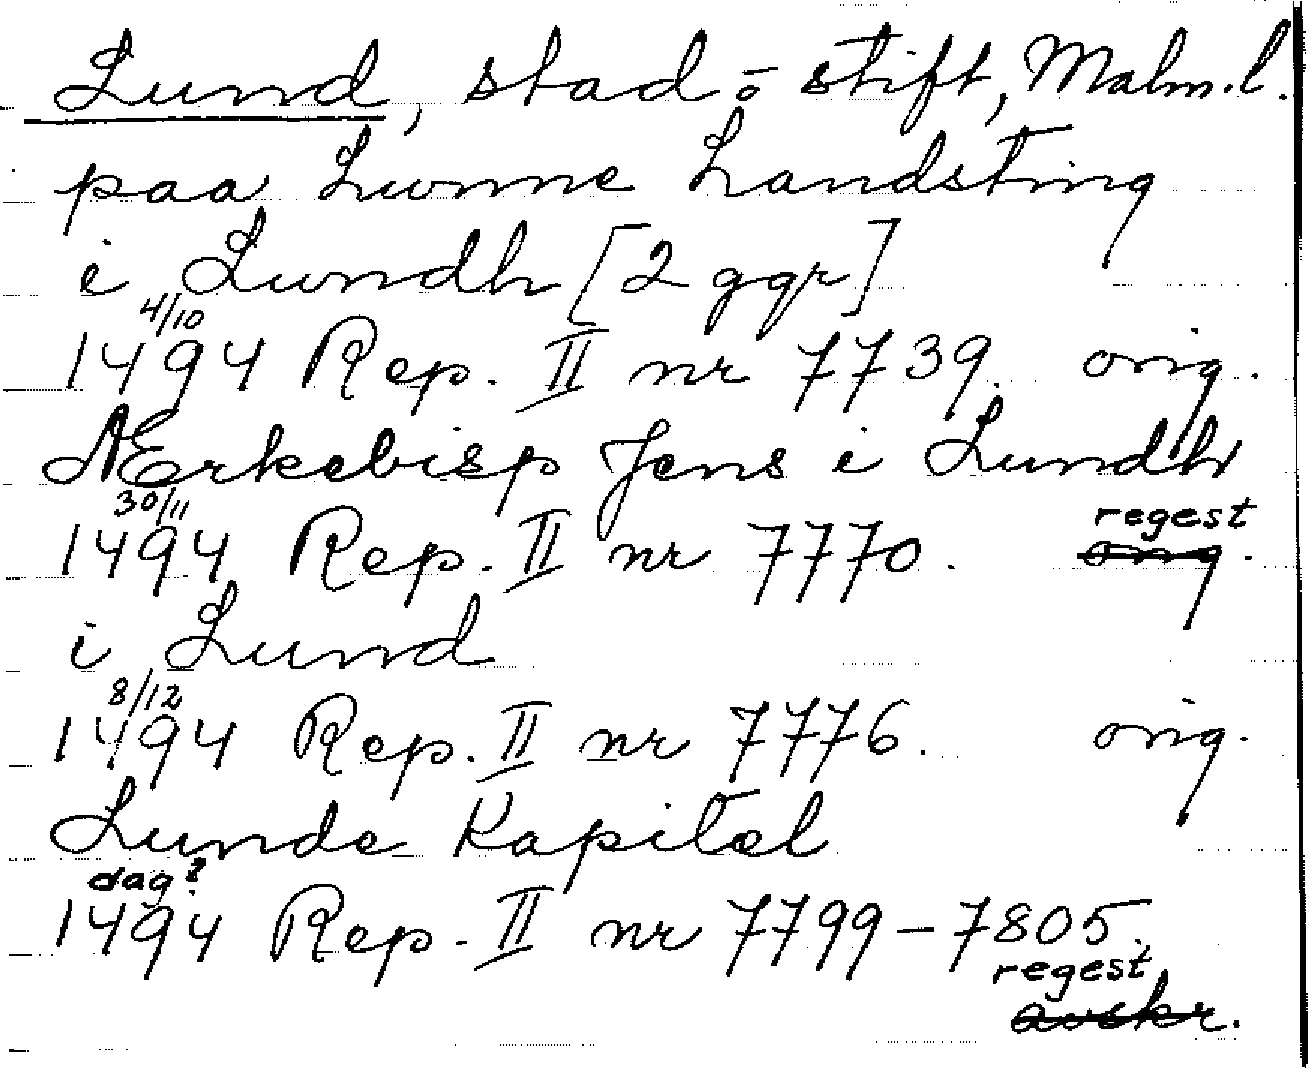 Lund, stad o stift, Malm.l.
paa Lwnne Landsting
i Lwndh [2 ggr]
4/10
1494 Rep. II nr 7739. orig.
Ærkebisp Jens i Lundh
30/11 regest
1494 Rep. II nr 7770. orig.
i Lund
8/12
1494 Rep. II nr 7776. orig.
Lunde Kapitel
dag?
1494 Rep. II nr 7799-7805.
regest
avskr.